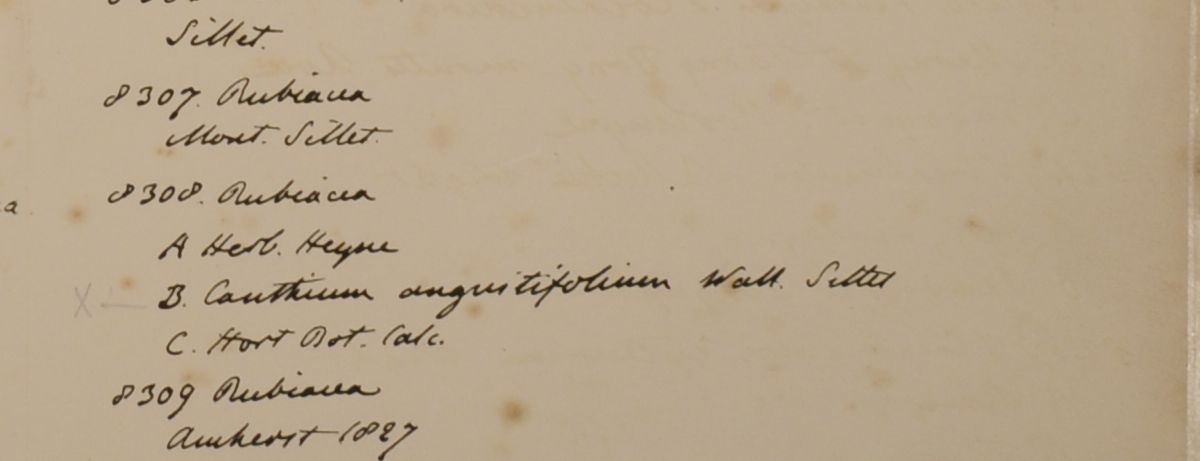 Sillet.
8307. Rubiacea
Mont. Sillet.
8308. Rubiacea
A Herb. Heyne
X — B. Canthium angustifolium Wall. Sillet
C. Hort Bot. Calc.
8309 Rubiacea
Amherst 1827